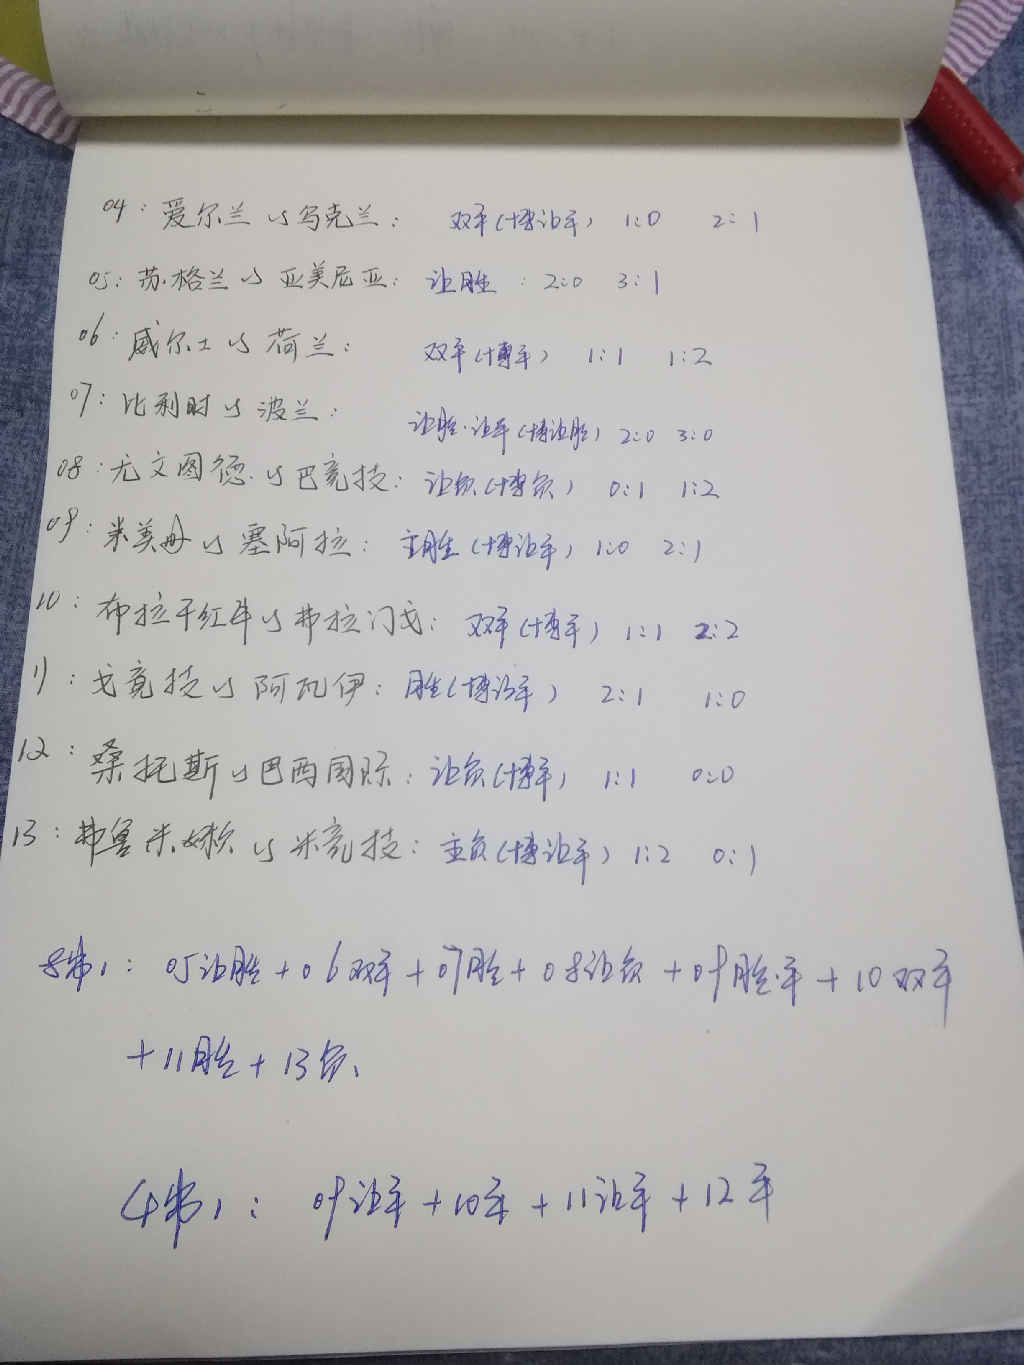 04：爱尔兰 vs 乌克兰： 双平(博让平) 1:0 2:1
05：苏格兰 vs 亚美尼亚： 让胜： 2:0 3:1
06：威尔士 vs 荷兰： 双平(博平) 1:1 1:2
07：比利时 vs 波兰： 让胜·让平(博让胜) 2:0 3:0
08：尤文图德 vs 巴竞技： 让负(博负) 0:1 1:2
09：米美母 vs 塞阿拉： 主胜(博让平) 1:0 2:1
10：布拉干红牛 vs 弗拉门戈： 双平(博平) 1:1 2:2
11：戈竞技 vs 阿瓦伊： 胜(博让平) 2:1 1:0
12：桑托斯 vs 巴西国际： 让负(博平) 1:1 0:0
13：弗鲁米嫩 vs 米竞技： 主负(博让平) 1:2 0:1
8串1： 05让胜+06双平+07胜+08让负+09胜·平+10双平
+11胜+13负、
4串1： 09让平+10平+11让平+12平